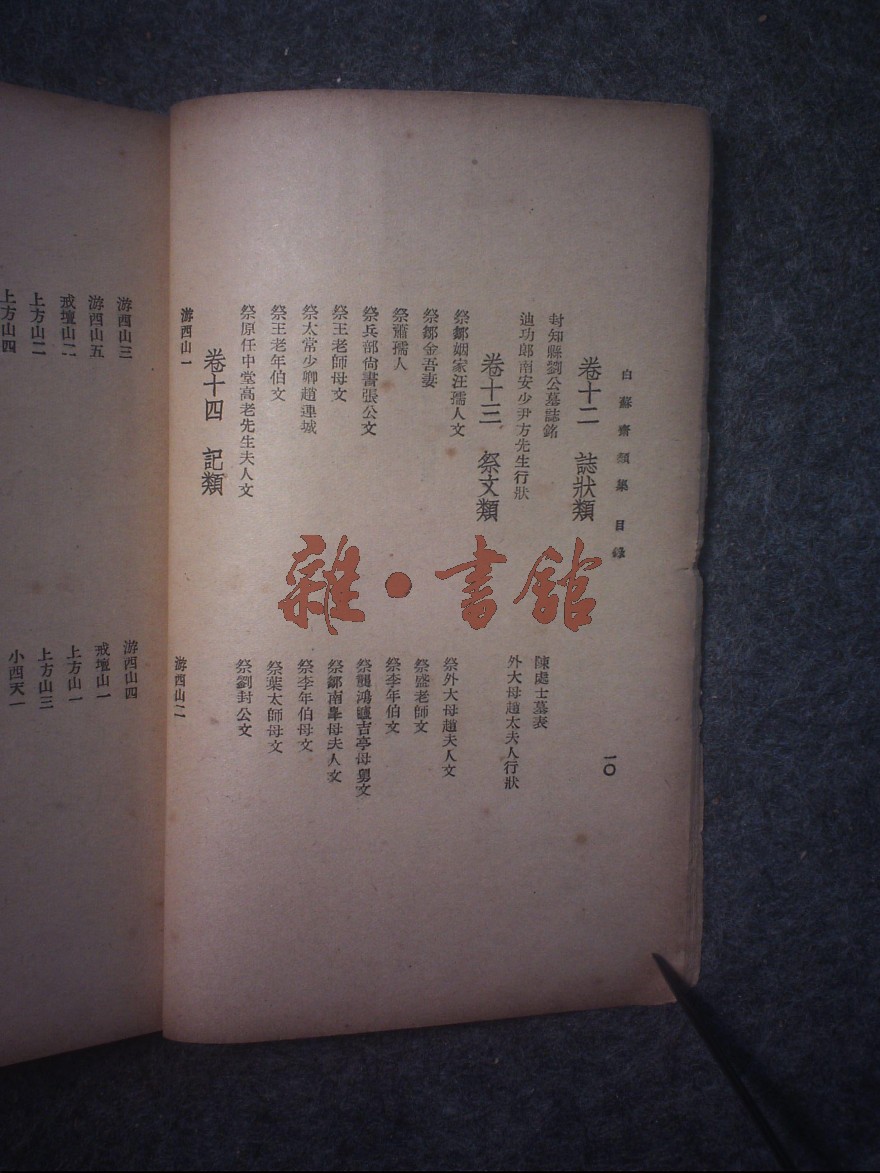 白蘇齋類集 目錄
一〇
卷十二 誌狀類
封知縣劉公墓誌銘
陳處士墓表
迪功郎南安少尹方先生行狀
外大母趙太夫人行狀
卷十三 祭文類
祭鄒姻家汪孺人文
祭外大母趙夫人文
祭鄒金吾妻
祭盛老師文
祭蕭孺人
祭李年伯文
祭兵部尙書張公文
祭龔鴻臚吉亭母舅文
祭王老師母文
祭鄒南臯母夫人文
祭太常少卿趙連城
祭李年伯母文
祭王老年伯文
祭葉太師母文
祭原任中堂高老先生夫人文
祭劉封公文
卷十四 記類
游西山一
游西山二
游西山三
游西山四
游西山五
戒壇山一
戒壇山二
上方山一
上方山二
上方山三
上方山四
小西天一
雜·書館